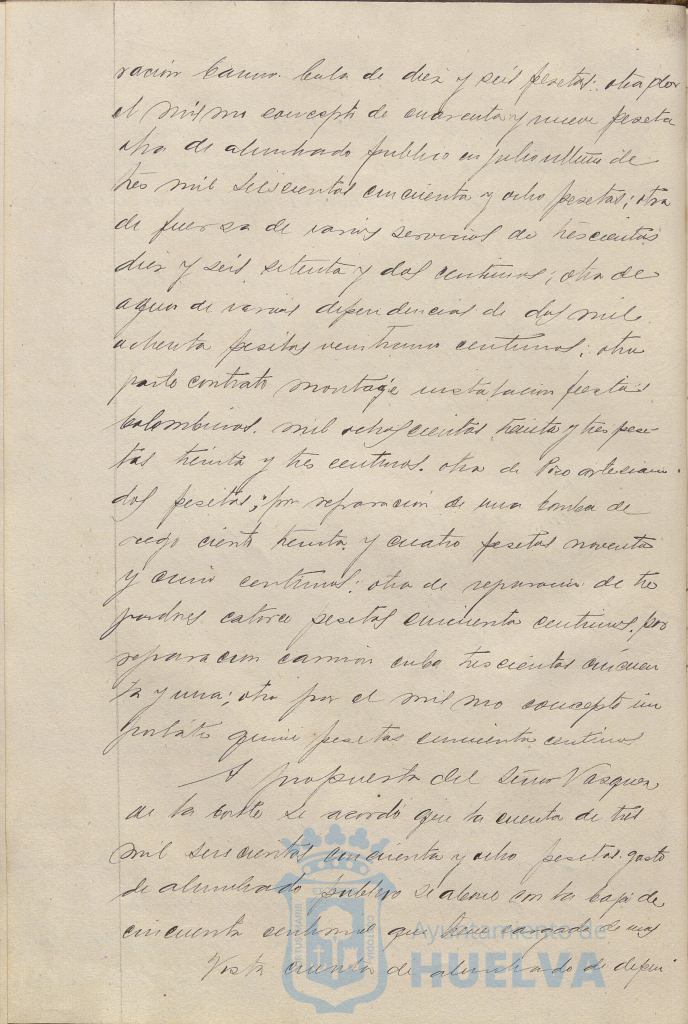 ración Camion Cuba de diez y seis pesetas: otra por
el mismo concepto de cuarenta y nueve peseta
otra de alumbrado publico en julio ultimo de
tres mil seiscientas cincuenta y ocho pesetas; otra
de fuerza de varios servicios de trescientas
diez y seis setenta y dos centimos; otra de
agua de varias dependencias de dos mil
ochenta pesetas veintiuno centimos; otra
parte contrato montage instalacion fiestas
Colombinas. mil ochocientas treinta y tres pese-
tas treinta y tres centimos. otra de Pozo artesiano
dos pesetas; por reparación de una bomba de
riego ciento treinta y cuatro pesetas noventa
y cinco centimos: otra de reparacion de tre
catorce pesetas cincuenta centimos. por
reparacion camion cuba trescientas cincuen
ta y una; otra por el mismo concepto im
portate quince pesetas cincuenta centimos
A propuesta del Señor Vazquez
de la Corte se acordó que la cuenta de tres
mil seiscientas cincuenta y ocho pesetas gasto
de alumbrado publico se abone con la baja de
cincuenta centimos que tiene cargado de mas
Vista cuenta de alumbrado de depen-
Ayuntamiento de
HUELVA